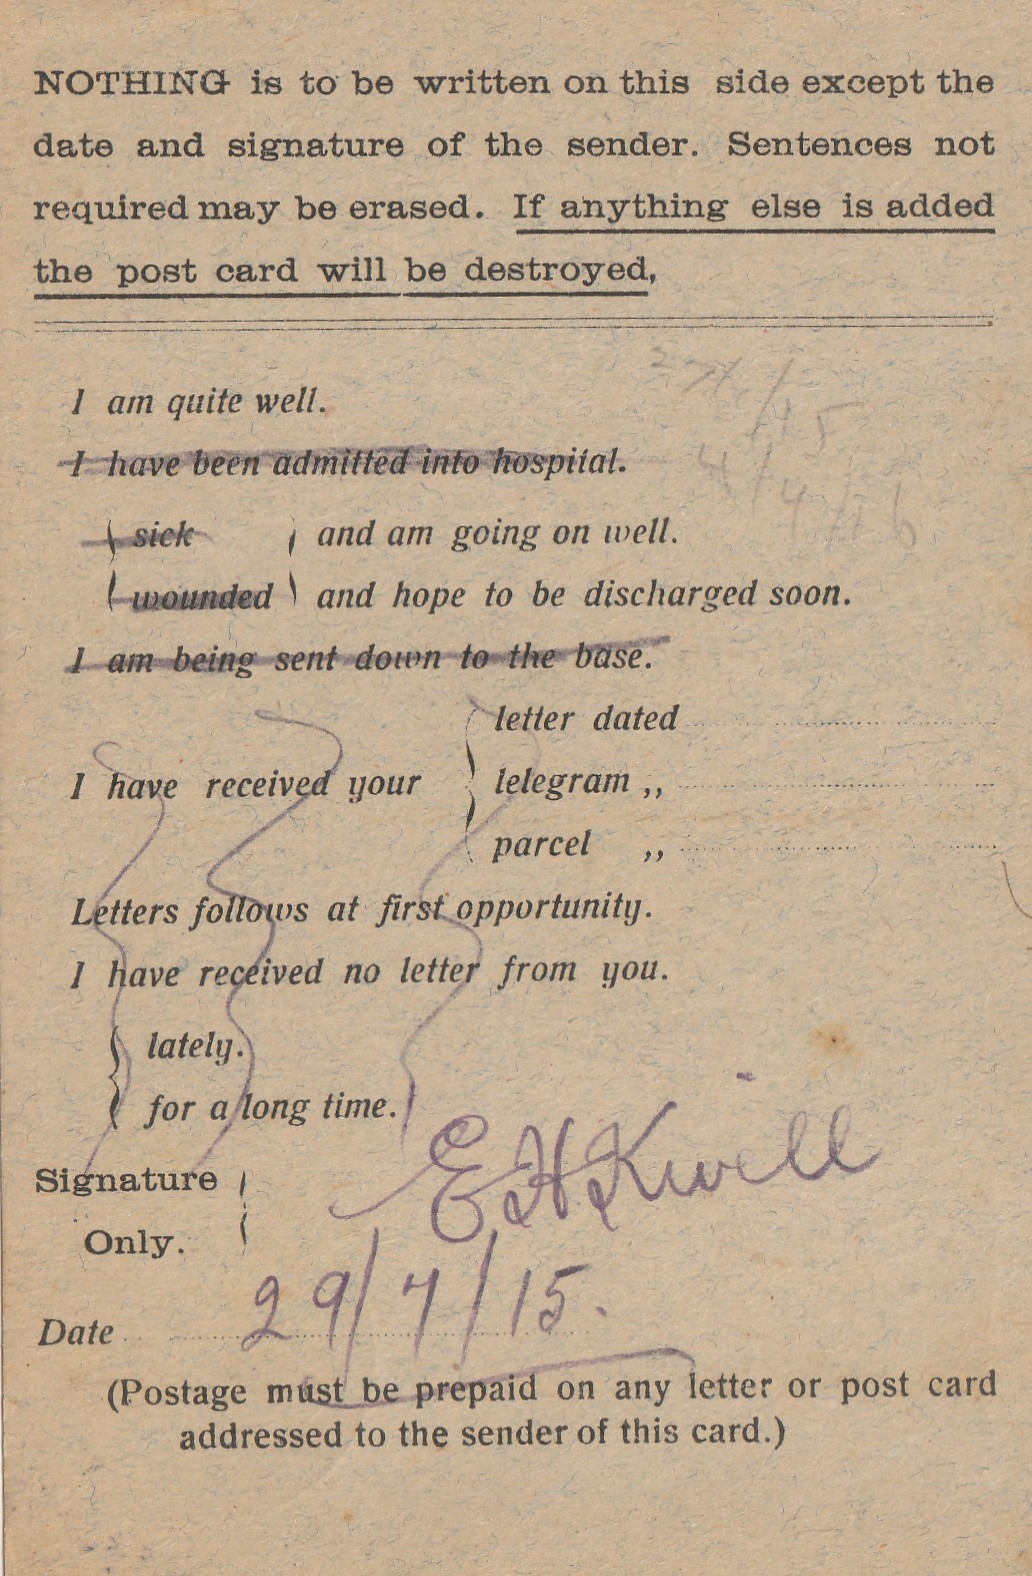 NOTHING is to be written on this side except the
date and signature of the sender. Sentences not
required may be erased. If anything else is added
the post card will be destroyed,
I am quite well.
I have been admitted into hospital.
sick } and am going on well.
wounded } and hope to be discharged soon.
I am being sent down to the base.
letter dated
I have received your { telegram ,,
parcel ,,
Letters follows at first opportunity.
I have received no letter from you.
{ lately.
{ for a long time.
Signature
Only.
E H Kwill
Date 29/7/15.
(Postage must be prepaid on any letter or post card
addressed to the sender of this card.)